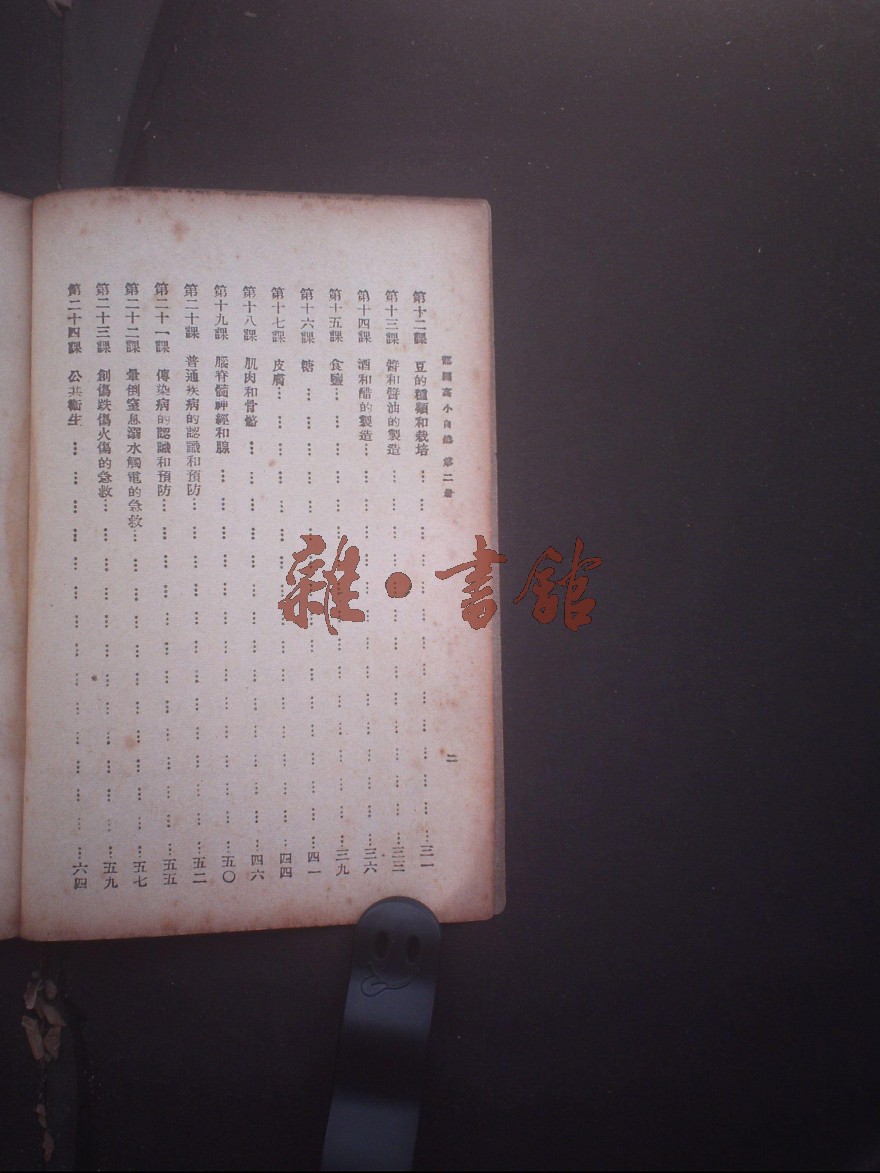 高小自然 第二册
二
第十二課 豆的種類和栽培……三一
第十三課 醬和醬油的製造……三三
第十四課 酒和醋的製造……三六
第十五課 食鹽……三九
第十六課 糖……四一
第十七課 皮膚……四四
第十八課 肌肉和骨骼……四六
第十九課 腦脊髓神經和腺……五〇
第二十課 普通疾病的認識和預防……五二
第二十一課 傳染病的認識和預防……五五
第二十二課 暈倒窒息溺水觸電的急救……五七
第二十三課 創傷跌傷火傷的急救……五九
第二十四課 公共衞生……六四
雜·書館